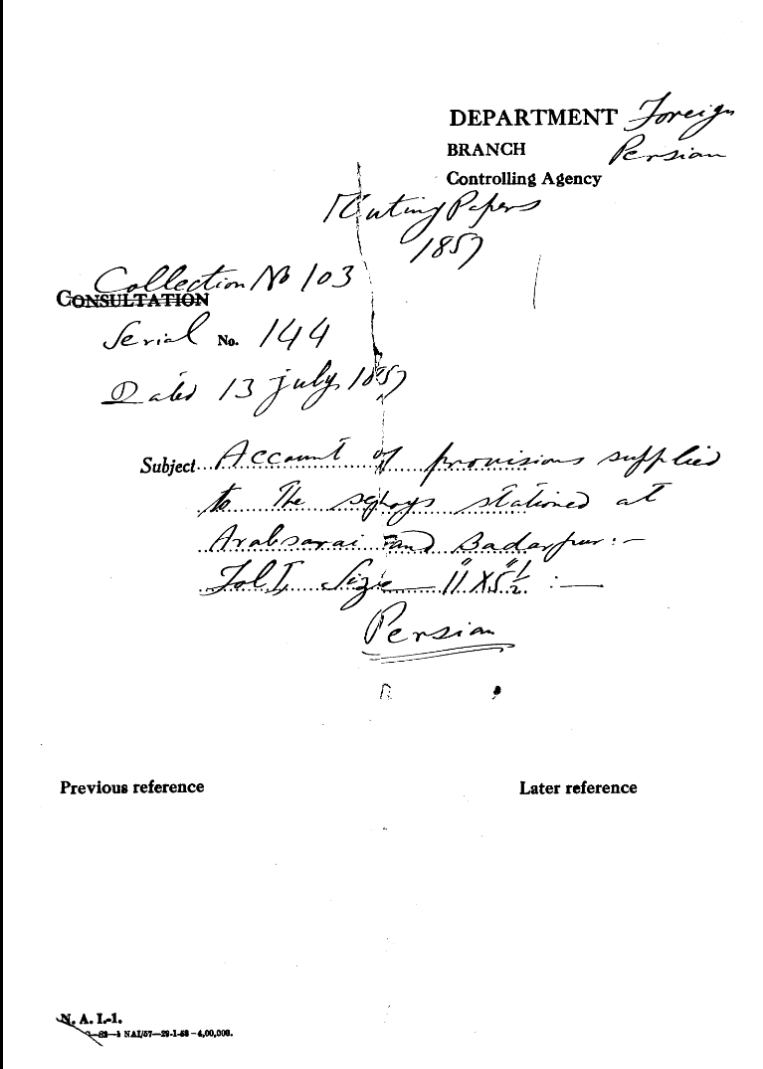 DEPARTMENT Foreign
BRANCH Persian
Controlling Agency
Mutiny Papers
1857
Collection No 103
CONSULTATION
Serial No. 144
Dated 13 July 1857
Subject Account of provisions supplied
to the sephoys stationed at
Arabsarai and Badarpur:-
Fol I, Size 11" X 5" 1/2 :—
Persian
Previous reference
Later reference
N. A. I.-1.
NAI/57—29-1-58—4,00,000.